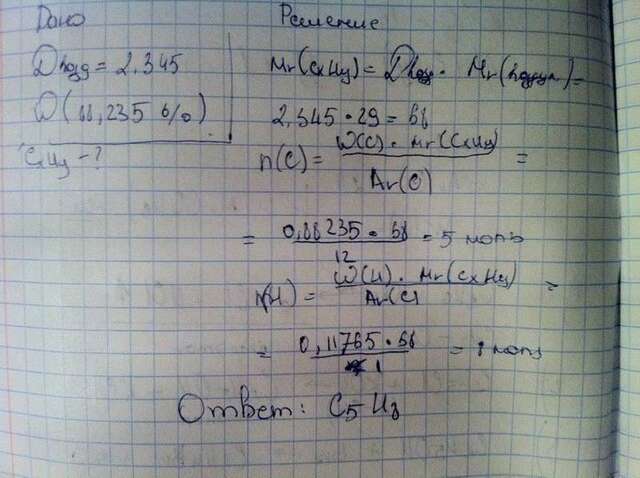 Дано
Dвозд = 2,345
W(88,235 %)
CxHy - ?
Решение
Mr(CxHy) = Dвозд. · Mr(воздух) =
2,345 · 29 = 68
n(C) = W(C) · Mr(CxHy) / Ar(C) =
= 0,88235 · 68 / 12 = 5 моль
n(H) = W(H) · Mr(CxHy) / Ar(C) =
= 0,11765 · 68 / 1 = 8 моль
Ответ: C5H8